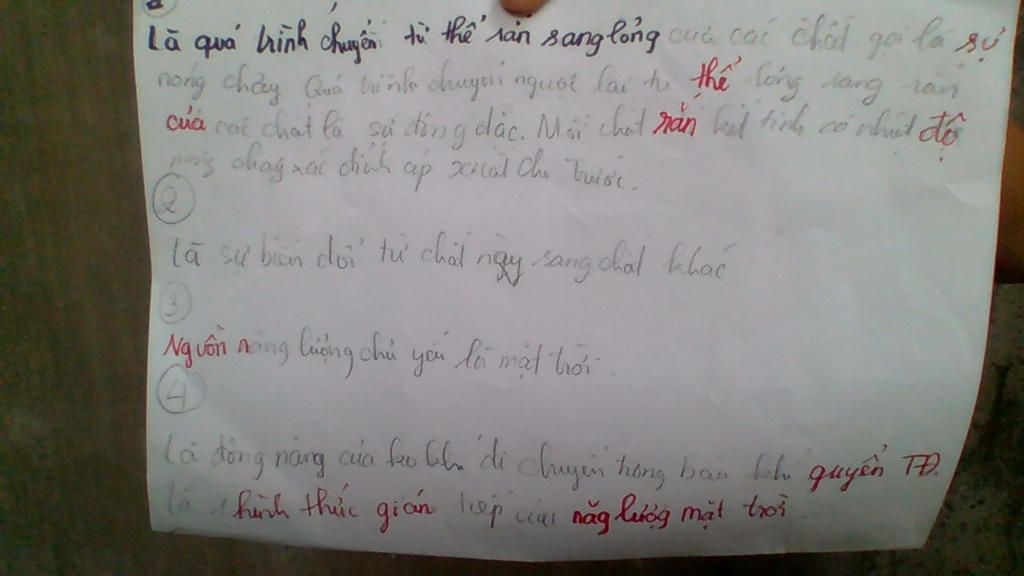 Là quá trình chuyển từ thể rắn sang lỏng của các chất gọi là sự
nóng chảy Quá trình chuyển ngược lại từ thể lỏng sang rắn
của các chất là sự đông đặc. Mỗi chất rắn kết tinh có nhiệt độ
nóng chảy xác định áp xuất cho trước.
2
là sự biến đổi từ chất này sang chất khác
3
Nguồn năng lượng chủ yếu là mặt trời.
4
là động năng của không khí di chuyển trong bầu khí quyển TĐ.
là 1 hình thức gián tiếp của năg lượg mặt trời.